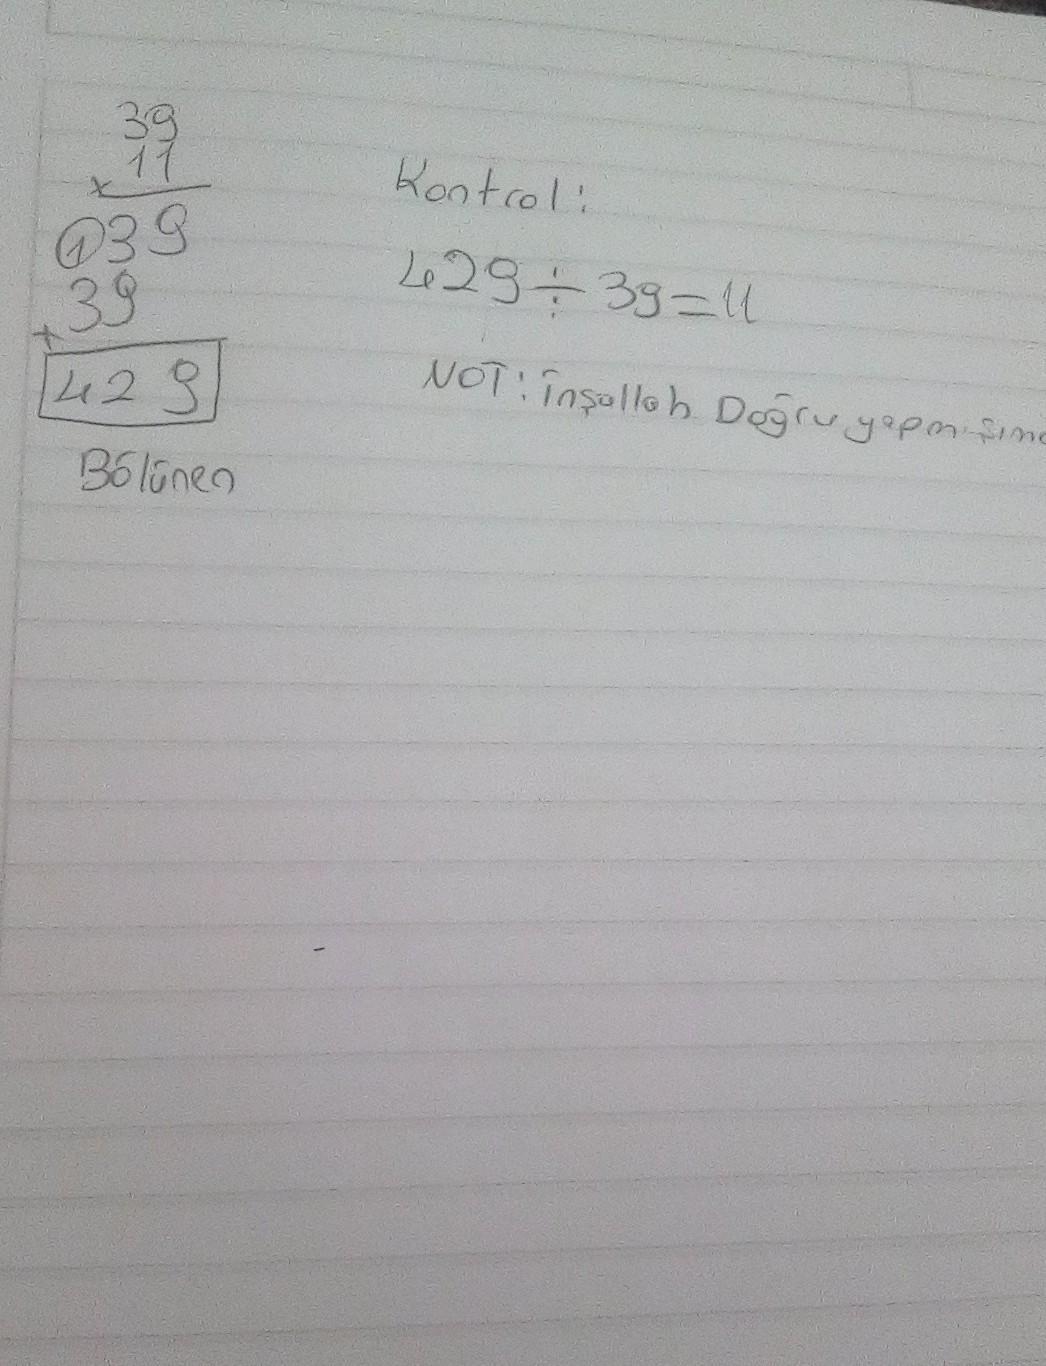 39
11
x
①39
39
+
429
Bölünen
Kontrol:
429÷39=11
NOT: İnşallah Doğru yapmışım